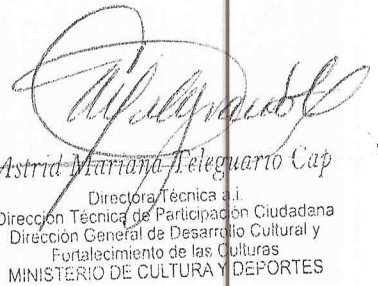 Astrid Mariana Teleguario Cap
Directora Técnica a.i.
Dirección Técnica de Participación Ciudadana
Dirección General de Desarrollo Cultural y
Fortalecimiento de las Culturas
MINISTERIO DE CULTURA Y DEPORTES